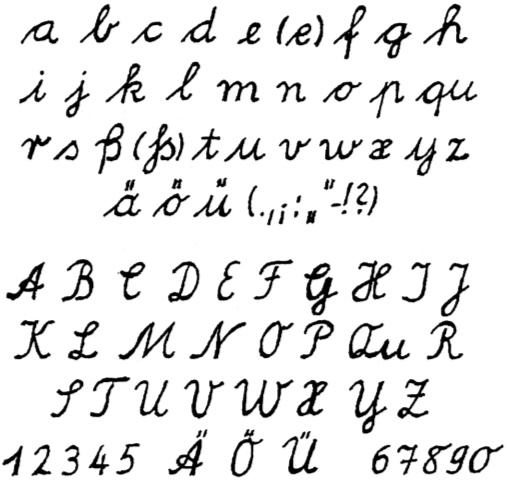 a b c d e (e) f g h
i j k l m n o p qu
r s ß (ß) t u v w x y z
ä ö ü (.,;:„"-!?)
A B C D E F G H I J
K L M N O P Qu R
S T U V W X Y Z
1 2 3 4 5 Ä Ö Ü 6 7 8 9 0